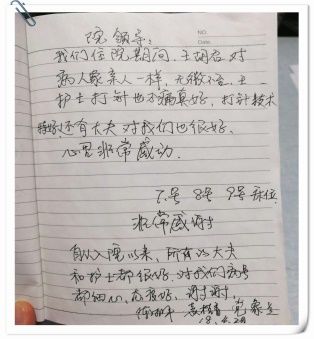 院领导:
NO.
Date
我们住院期间.王胡君对
病人象亲人一样,无微不至.
护士打针也不痛真好,打针技术
特好.还有大夫对我们也很好.
心里非常感动.
7号 8号 9号床位
非常感谢
自从入院以来,所有的大夫
和护士都很好.对我们病号
都细心,态度好,谢谢,谢谢.
18.4.28